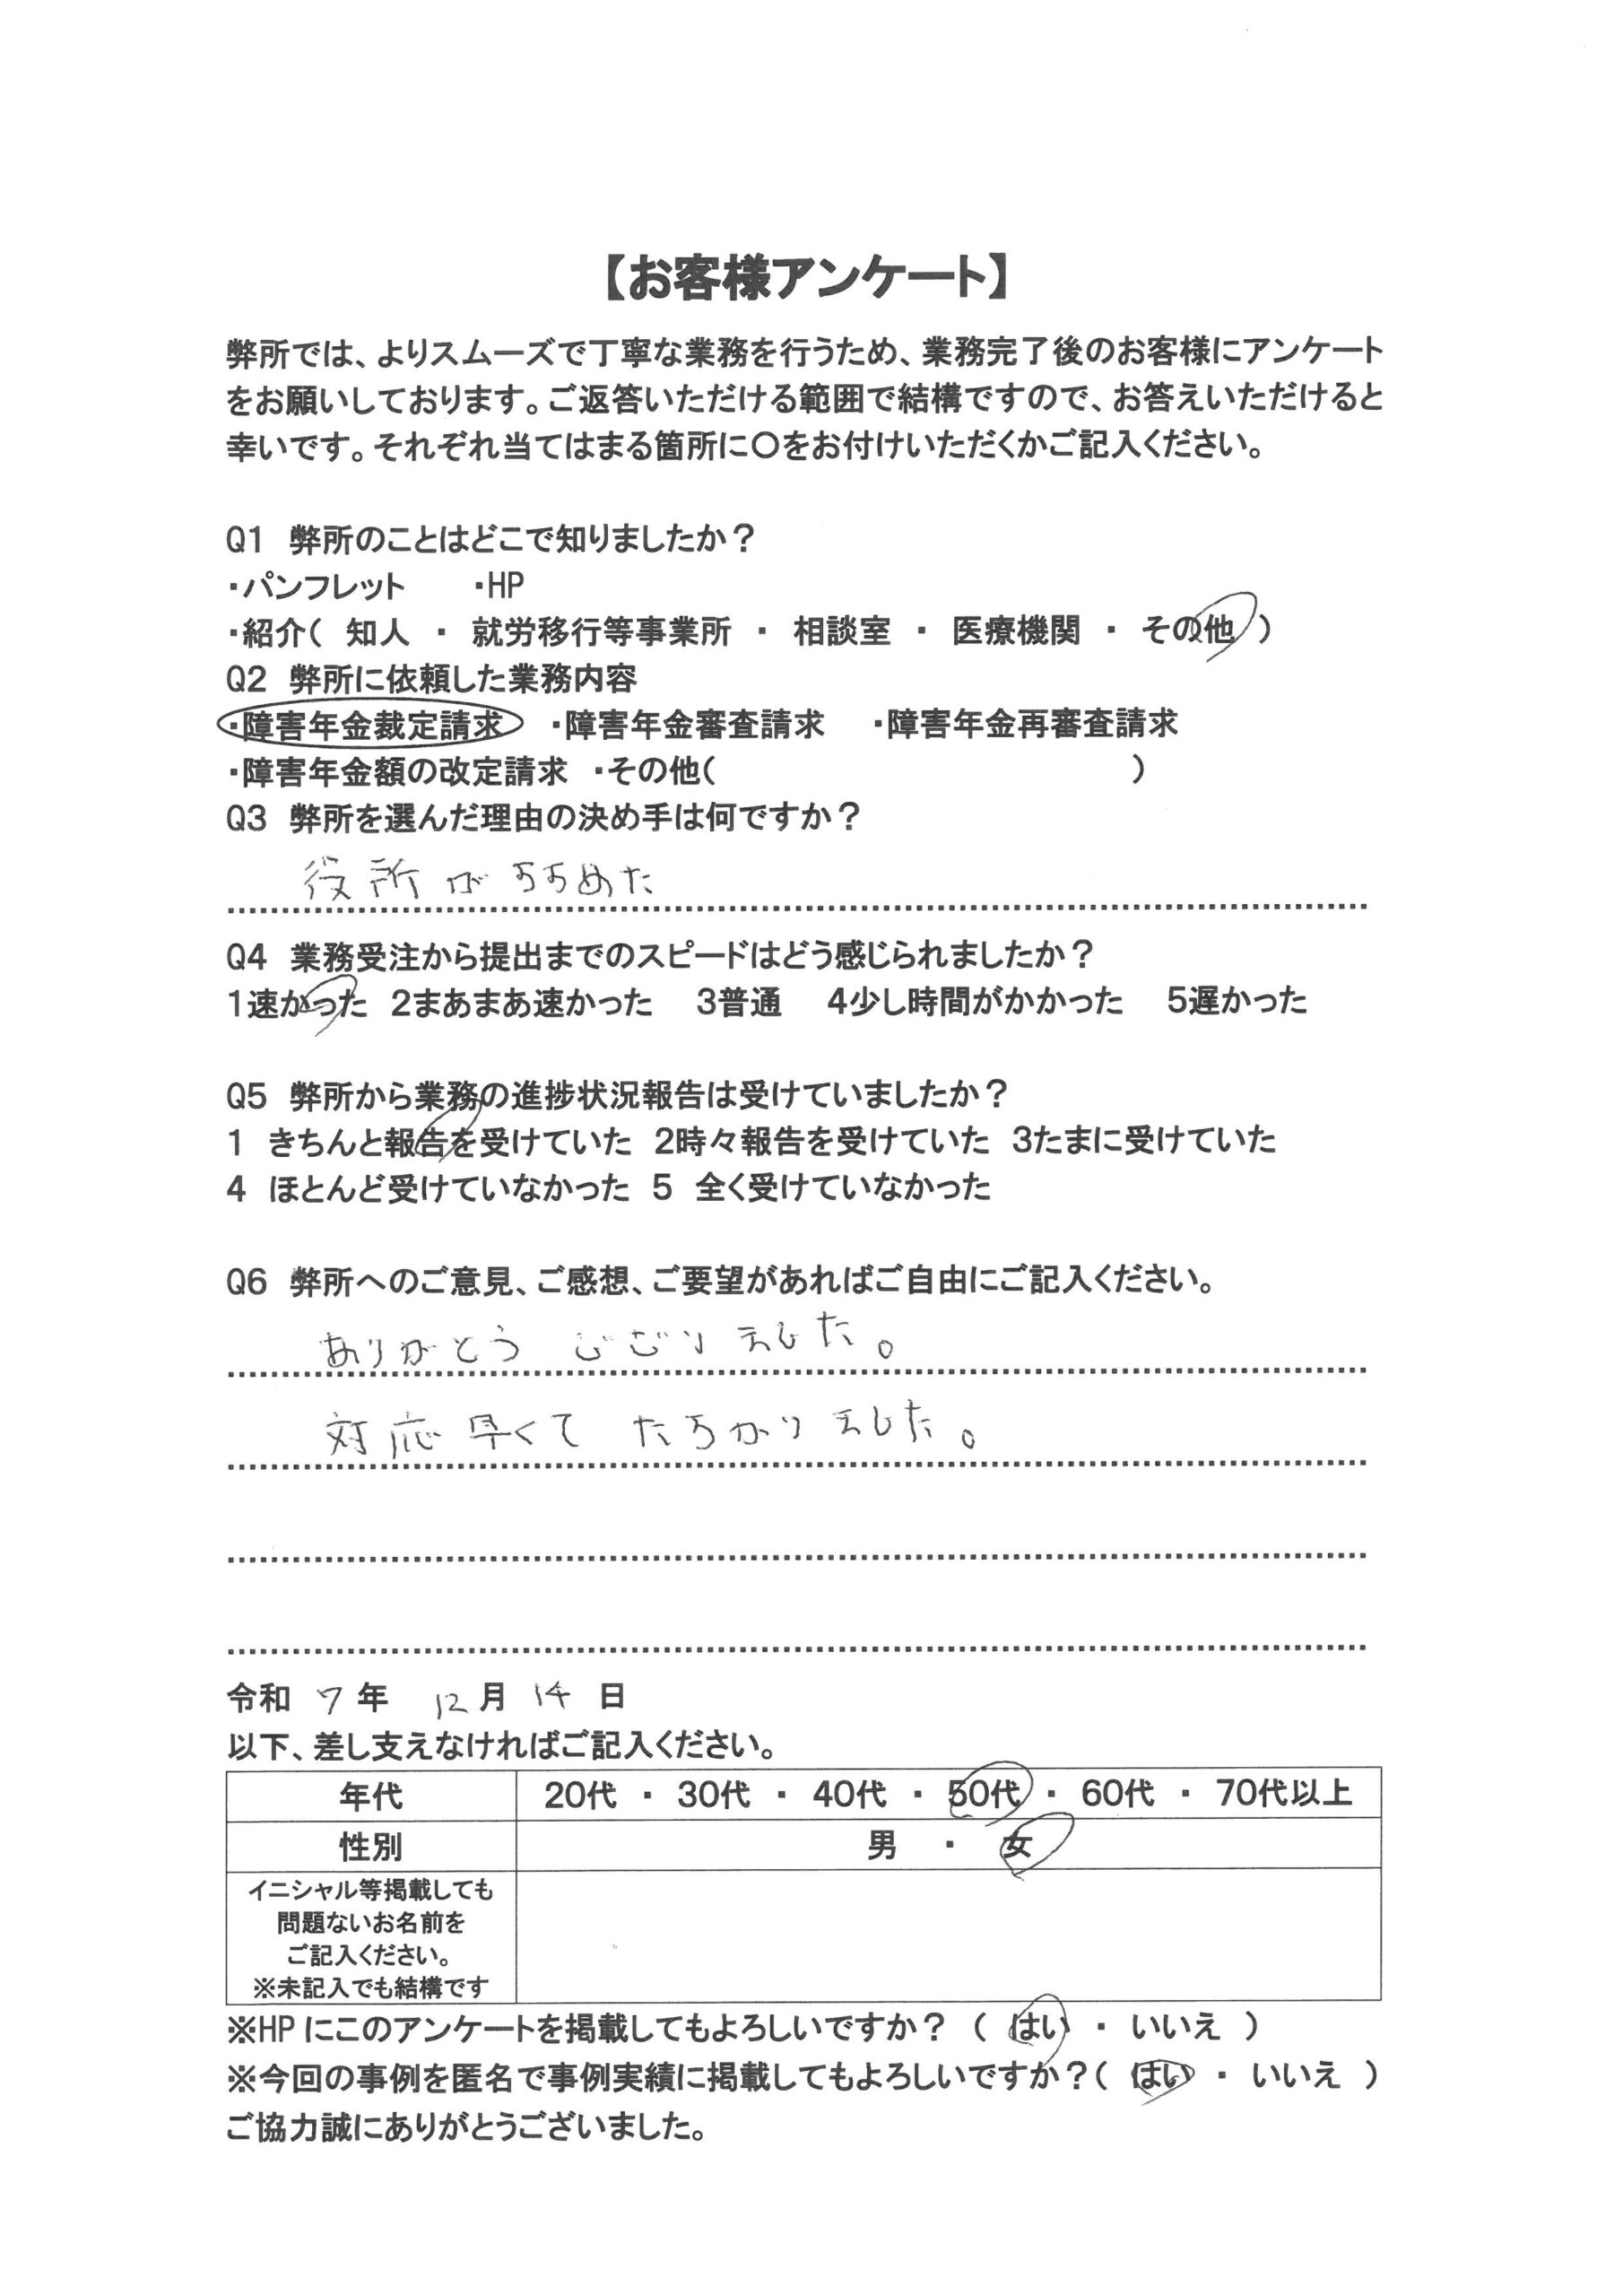 【お客様アンケート】
弊所では、よりスムーズで丁寧な業務を行うため、業務完了後のお客様にアンケート
をお願いしております。ご返答いただける範囲で結構ですので、お答えいただけると
幸いです。それぞれ当てはまる箇所に〇をお付けいただくかご記入ください。
Q1 弊所のことはどこで知りましたか？
・パンフレット ・HP
・紹介( 知人 ・ 就労移行等事業所 ・ 相談室 ・ 医療機関 ・ その他 )
Q2 弊所に依頼した業務内容
・障害年金裁定請求 ・障害年金審査請求 ・障害年金再審査請求
・障害年金額の改定請求 ・その他( )
Q3 弊所を選んだ理由の決め手は何ですか？
役所がすすめた
Q4 業務受注から提出までのスピードはどう感じられましたか？
1速かった 2まあまあ速かった 3普通 4少し時間がかかった 5遅かった
Q5 弊所から業務の進捗状況報告は受けていましたか？
1 きちんと報告を受けていた 2時々報告を受けていた 3たまに受けていた
4 ほとんど受けていなかった 5 全く受けていなかった
Q6 弊所へのご意見、ご感想、ご要望があればご自由にご記入ください。
ありがとうございました。
対応早くてたすかりました。
令和 7 年 12 月 14 日
以下、差し支えなければご記入ください。
年代 20代 ・ 30代 ・ 40代 ・ 50代 ・ 60代 ・ 70代以上
性別 男 ・ 女
イニシャル等掲載しても
問題ないお名前を
ご記入ください。
※未記入でも結構です
※HPにこのアンケートを掲載してもよろしいですか？ ( はい ・ いいえ )
※今回の事例を匿名で事例実績に掲載してもよろしいですか？( はい ・ いいえ )
ご協力誠にありがとうございました。